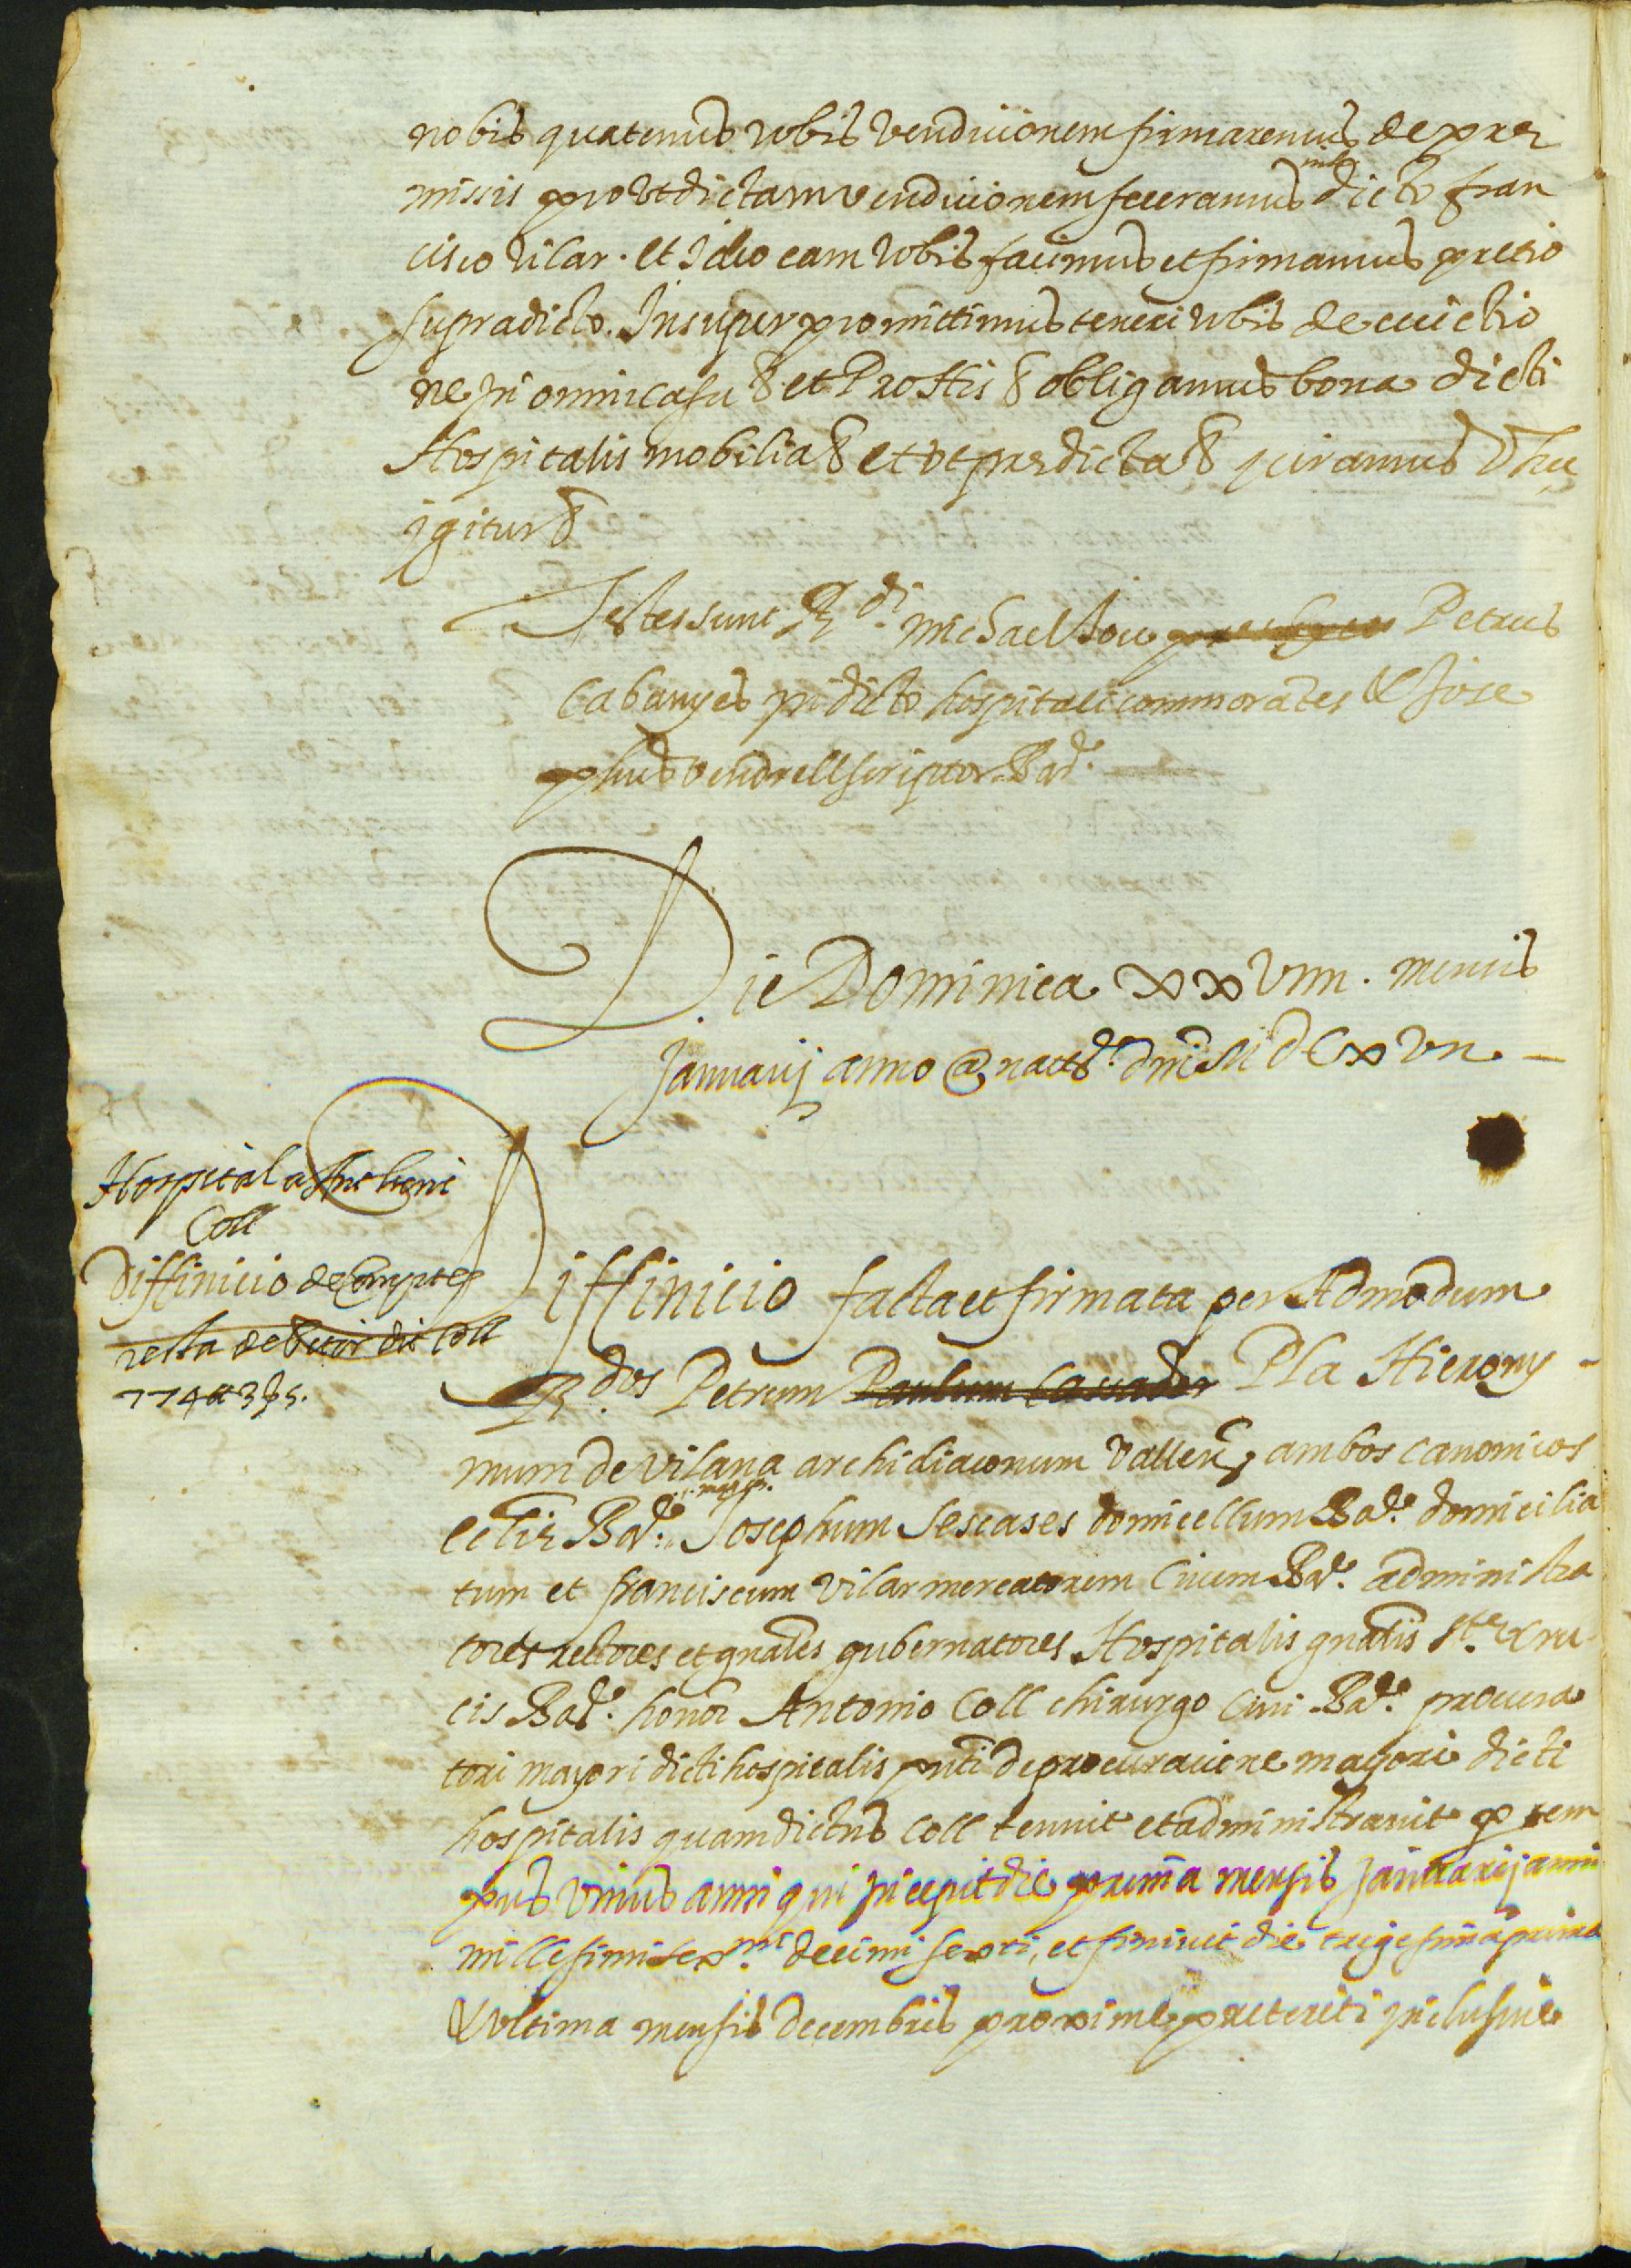 nobis quatenus vobis vendicionem firmaremus de prae
missis prout dictam vendicionem feceramus dicto fran
cisco vilar. et Ideo eam vobis facimus et firmamus pretio
supradicto. Insuper promittimus teneri vobis de euictio
ne in omni casu & et Pro His & obligamus bona dicti
Hospitalis mobilia & et ut praedicta & juramus
igitur &
Testes sunt R.di michael Petrus
Cabanyes in dicto hospitali commorātes & Jose
phus vendrell scriptor Bar.
Die Dominica xxviiii. mensis
Januarij anno a natte. dni MDCxvii —
Hospital a Anthoni
Coll
Diffinicio de Comptes
resta debitor dit Coll
774 ₶ 3 ẞ 5.
Diffinicio facta et firmata per Admodum
R.dos Petrum Paulum Cassador Pla Hierony -
mum de Vilana archidiaconum Vallen, ambos canonicos
magcos.
ecclie Bar. Josephum Sescases domicellum Bar. domicilia
tum et franciscum Vilar mercatorem Ciuem Bar. administra
tores rectores et gnales gubernatores Hospitalis gnalis Ste Cru
cis Bar. honor Antonio Coll chirurgo Ciui Bar. procura
tori mayori dicti hospitalis pnti de procuracione mayori dicti
hospitalis quam dictus Coll tenuit et administrauit p tem
pus vnius anni qui incepit die prima mensis Januarij anni
millesimi sexmi. decimi sexti, et finiuit die trigesima prima
& vltima mensis decembris proxime preteriti inclusiue